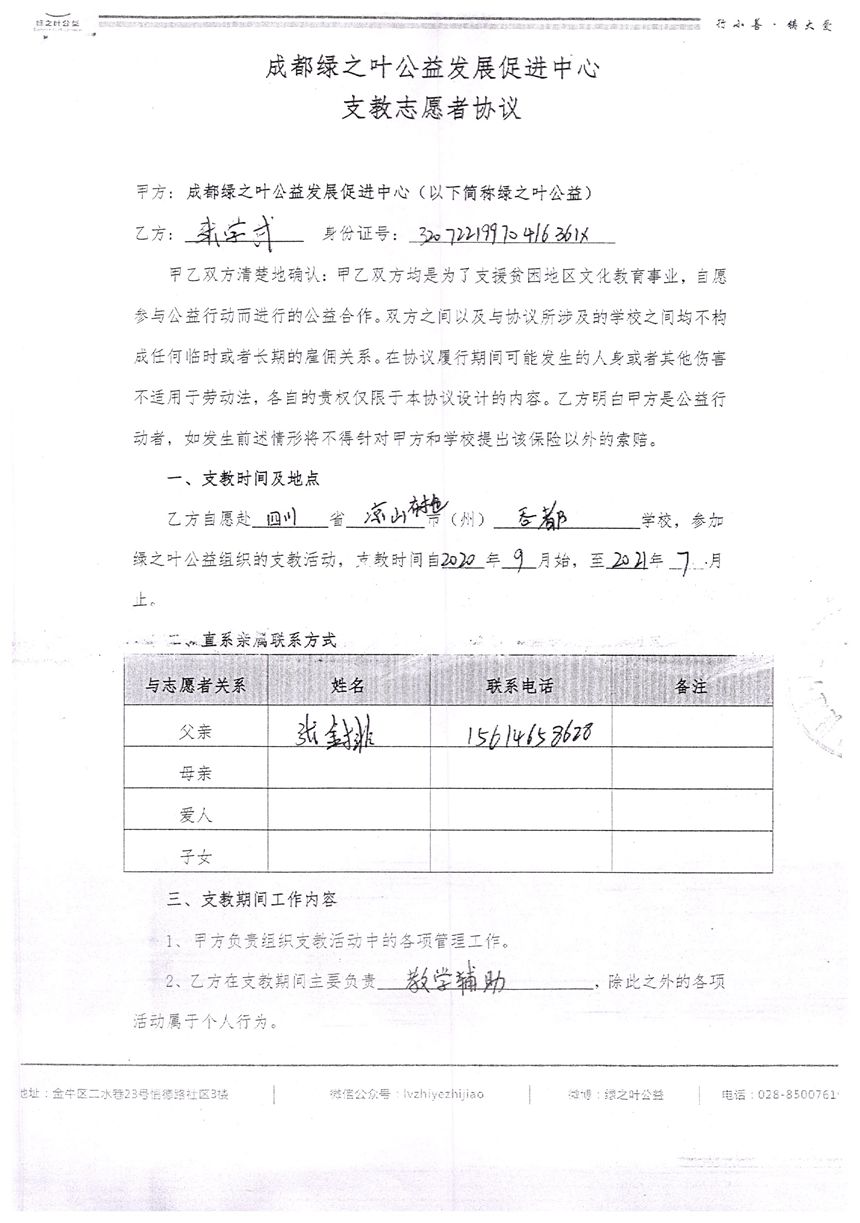 绿之叶公益
行小善·镁大爱
成都绿之叶公益发展促进中心
支教志愿者协议
甲方：成都绿之叶公益发展促进中心（以下简称绿之叶公益）
乙方：张学武 身份证号：32072219970416361X
甲乙双方清楚地确认：甲乙双方均是为了支援贫困地区文化教育事业，自愿
参与公益行动而进行的公益合作。双方之间以及与协议所涉及的学校之间均不构
成任何临时或者长期的雇佣关系。在协议履行期间可能发生的人身或者其他伤害
不适用于劳动法，各自的责权仅限于本协议设计的内容。乙方明白甲方是公益行
动者，如发生前述情形将不得针对甲方和学校提出该保险以外的索赔。
一、支教时间及地点
乙方自愿赴 四川 省 凉山 市（州） 学校，参加
绿之叶公益组织的支教活动，支教时间自2020年 9 月始，至2021年 7 月
止。
二、直系亲属联系方式
与志愿者关系 姓名 联系电话 备注
父亲 张 15614658628
母亲
爱人
子女
三、支教期间工作内容
1、甲方负责组织支教活动中的各项管理工作。
2、乙方在支教期间主要负责 教学辅助 ，除此之外的各项
活动属于个人行为。
地址：金牛区二水巷23号怡德路社区3楼 微信公众号：lvzhiyezhijiao 微博：绿之叶公益 电话：028-8500761